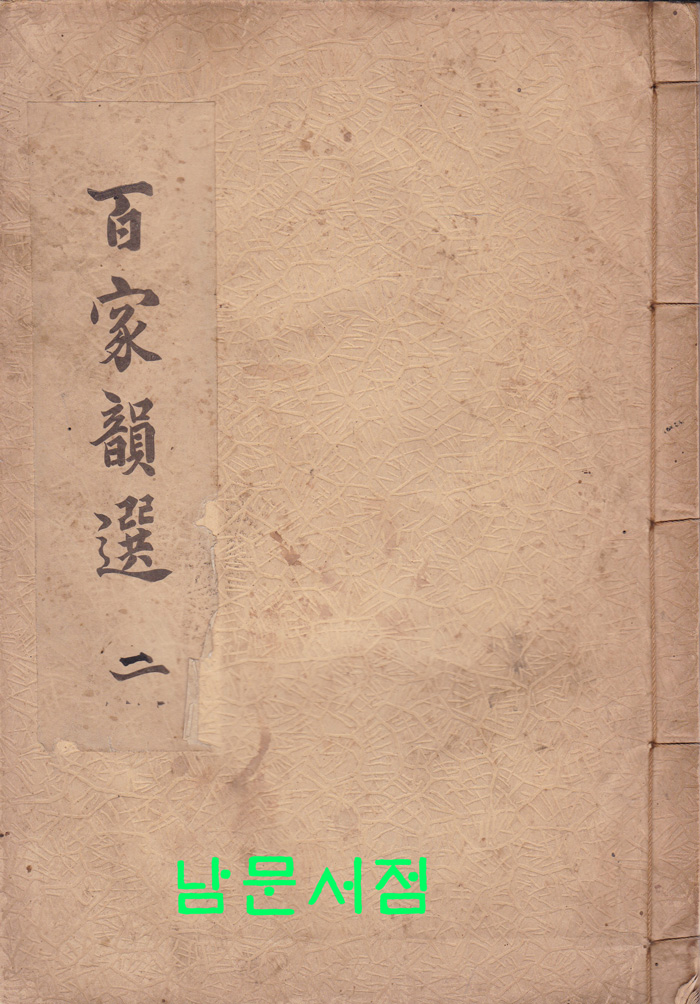 百家韻選 二
남문서점